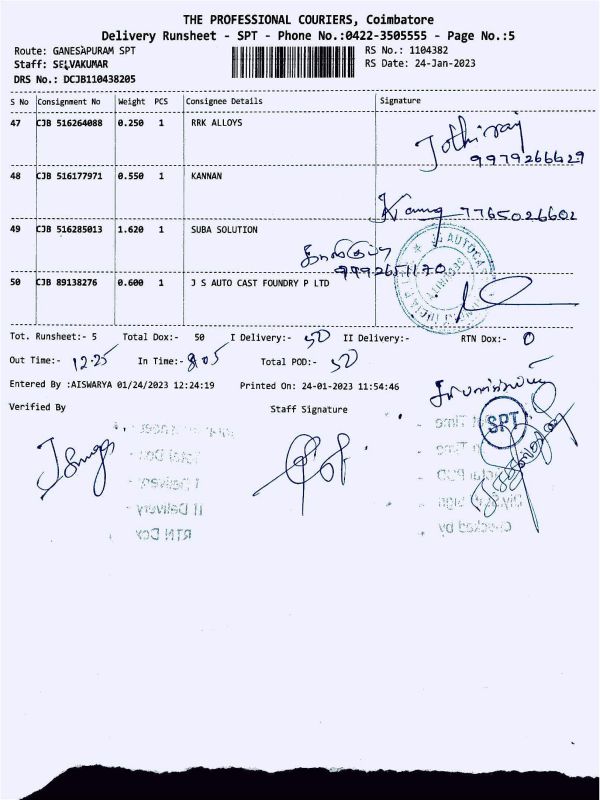 THE PROFESSIONAL COURIERS, Coimbatore
Delivery Runsheet - SPT - Phone No.:0422-3505555 - Page No.:5
Route: GANESAPURAM SPT RS No.: 1104382
Staff: SELVAKUMAR RS Date: 24-Jan-2023
DRS No.: DCJB110438205
S No Consignment No Weight PCS Consignee Details Signature
47 CJB 516264088 0.250 1 RRK ALLOYS Jothiraj
9979266629
48 CJB 516177971 0.550 1 KANNAN
7765026602
49 CJB 516285013 1.620 1 SUBA SOLUTION
9992651170
50 CJB 89138276 0.600 1 J S AUTO CAST FOUNDRY P LTD
Tot. Runsheet:- 5 Total Dox:- 50 I Delivery:- 50 II Delivery:- RTN Dox:- 0
Out Time:- 12.25 In Time:- 8.05 Total POD:- 50
Entered By :AISWARYA 01/24/2023 12:24:19 Printed On: 24-01-2023 11:54:46
Verified By Staff Signature
SPT
Total Dox
I Delivery
II Delivery
RTN Dox
Checked by